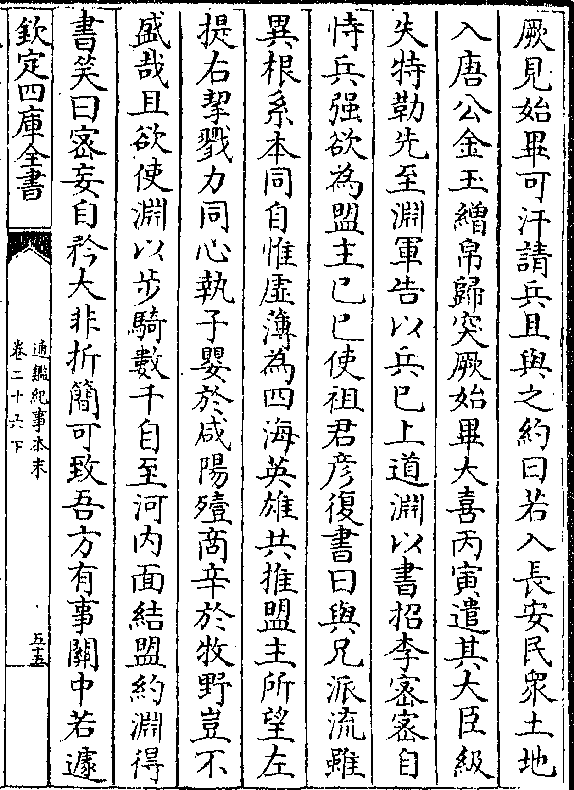 厥見始畢可汗請兵且與之約曰若入長安民衆土地
入唐公金玉繒帛歸突厥始畢大喜丙寅遣其大臣級
失特勒先至淵軍告以兵已上道淵以書招李密密自
恃兵强欲為盟主己巳使祖君彦復書曰與兄派流雖
異根系本同自惟虚薄為四海英雄共推盟主所望左
提右挈戮力同心執子嬰於咸陽殪商辛於牧野豈不
盛哉且欲使淵以步騎數千自至河内面結盟約淵得
書笑曰密妄自矜大非折簡可致吾方有事關中若遽
欽定四庫全書
通鑑紀事本末
卷二十六下
五十五